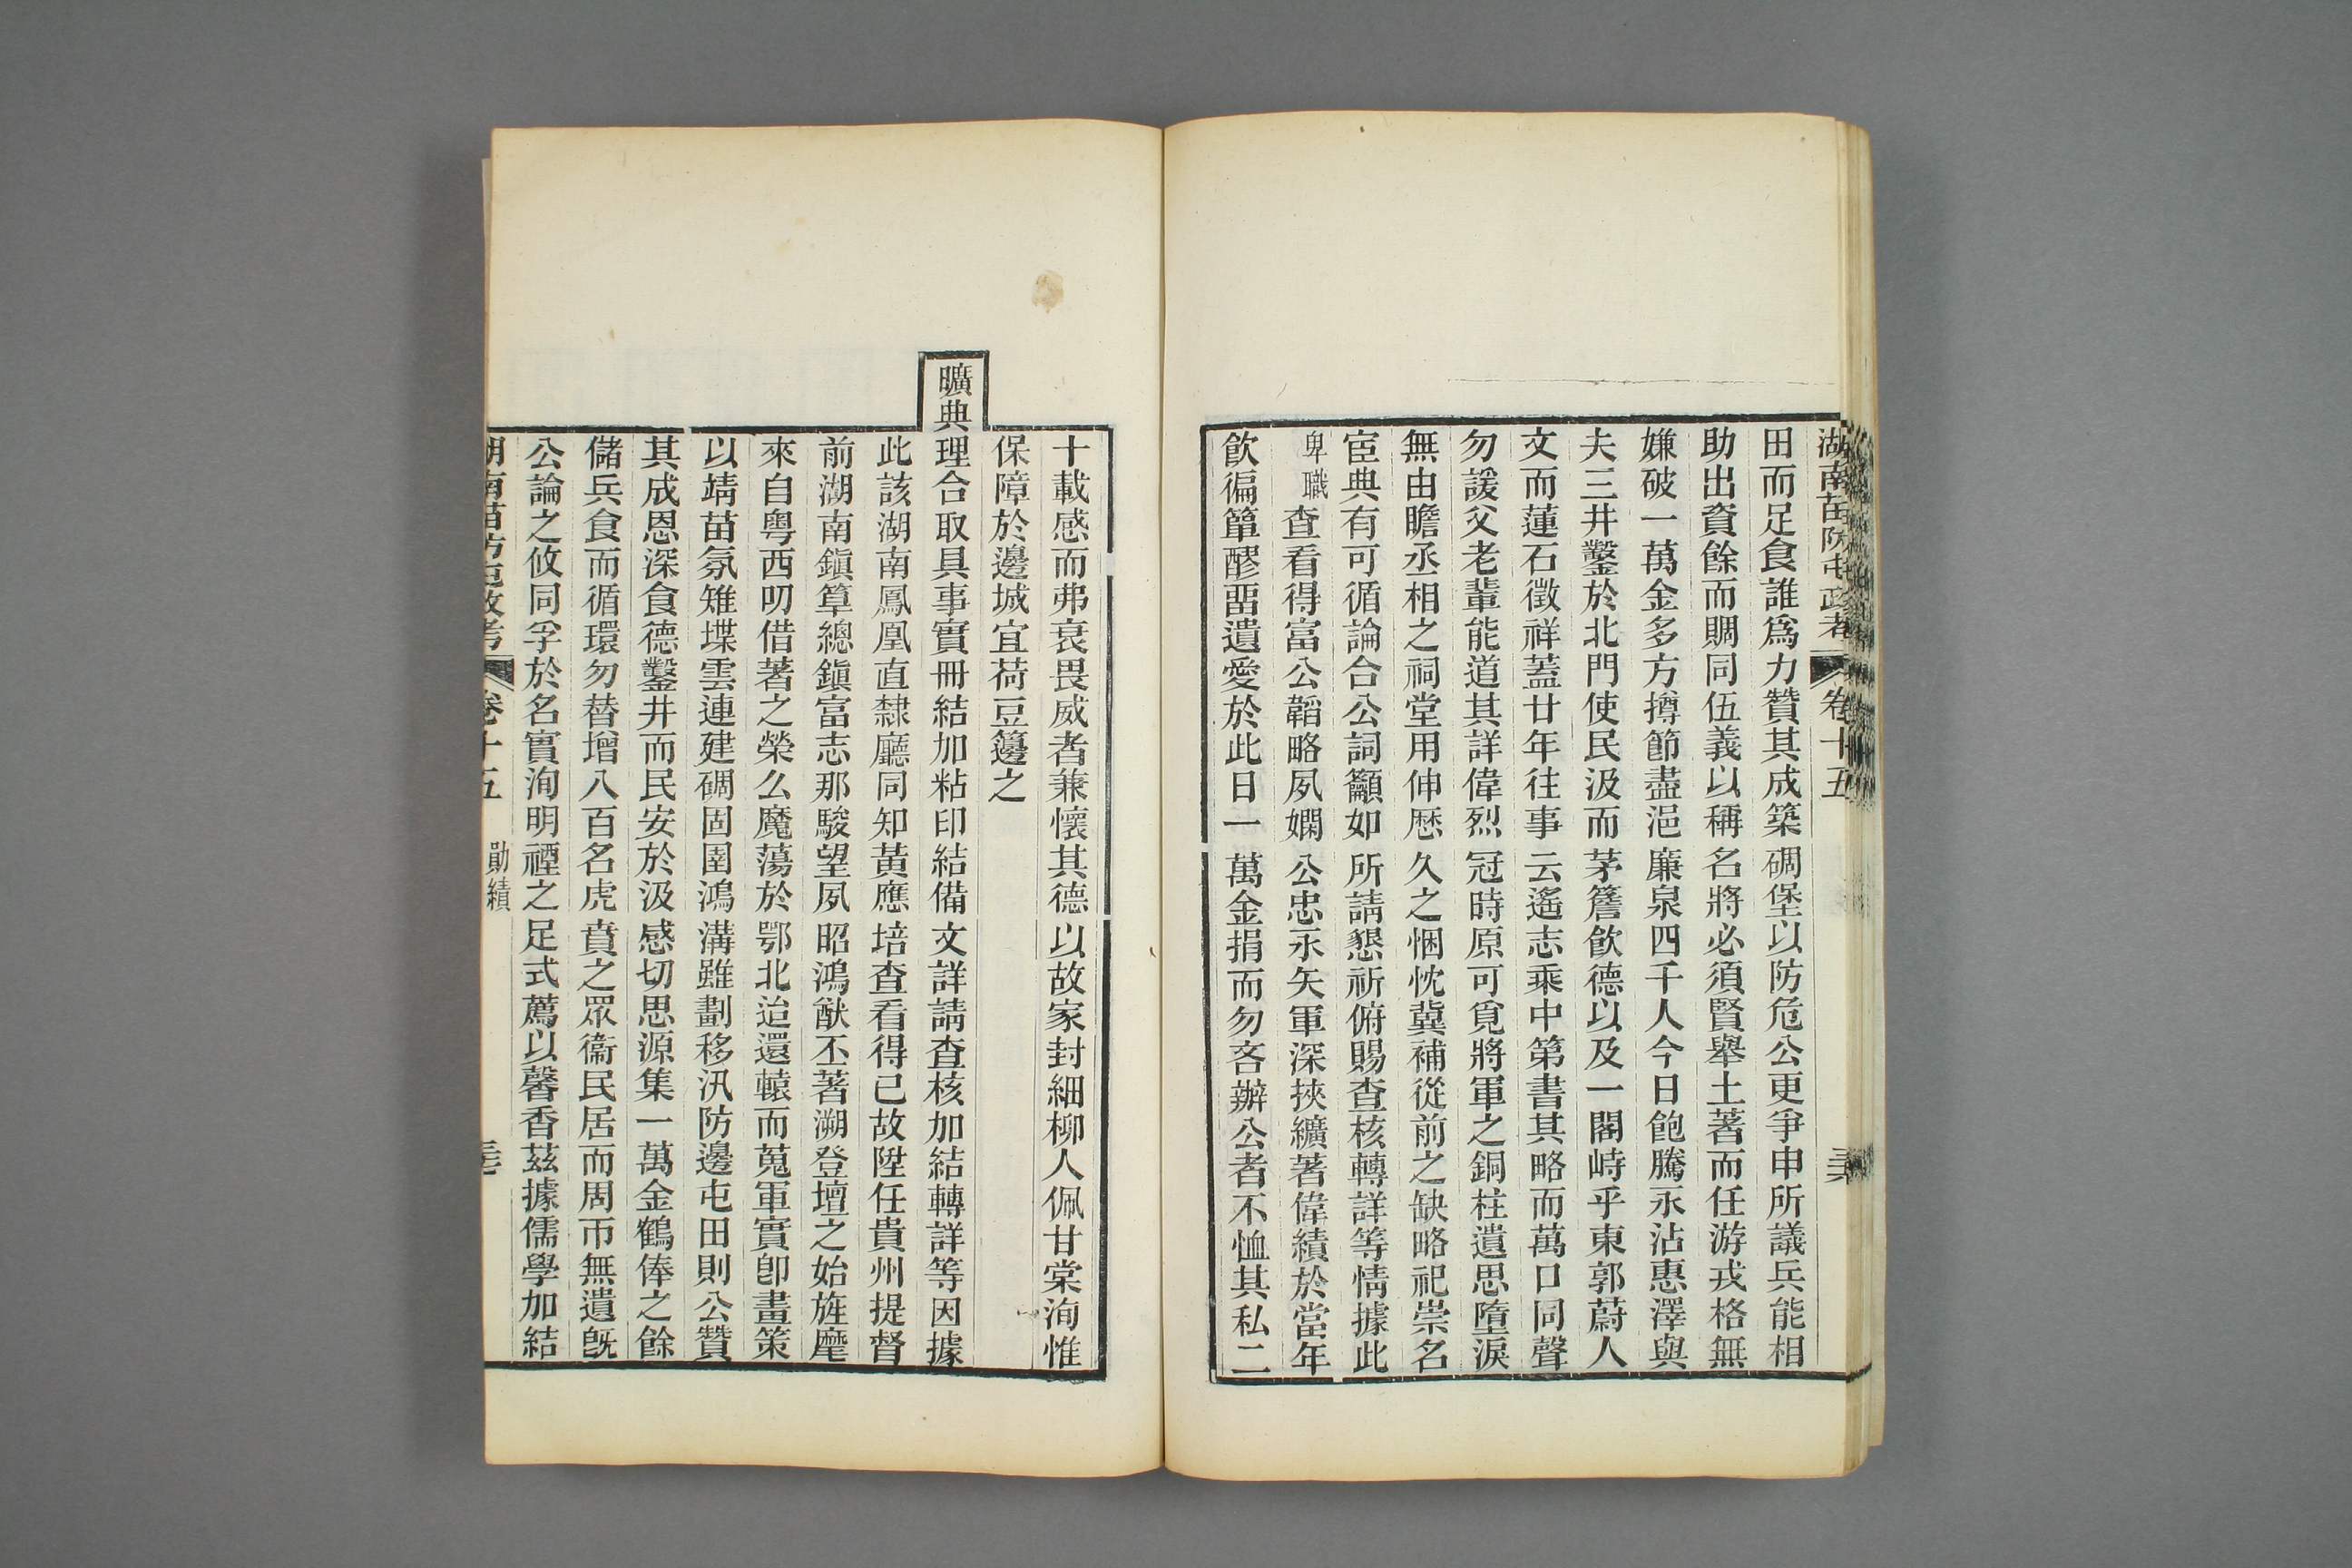 湖南苗防屯政考 卷十五
田而足食誰爲力贊其成築碉堡以防危公更爭申所議兵能相
助出資餘而賙同伍義以稱名將必須賢舉土著而任游戎格無
嫌破一萬金多方撙節盡浥廉泉四千人今日飽騰永沾惠澤與
夫三井鑿於北門使民汲而茅簷飲德以及一閣峙乎東郭蔚人
文而蓮石徵祥蓋廿年往事云遙志乘中第書其略而萬口同聲
勿諼父老輩能道其詳偉烈冠時原可覓將軍之銅柱遺思墮淚
無由瞻丞相之祠堂用伸歷久之悃忱冀補從前之缺略祀崇名
宦典有可循論合公詞籲如所請懇祈俯賜查核轉詳等情據此
卑職查看得富公韜略夙嫻公忠永矢軍深挾纊著偉績於當年
飲徧簞醪畱遺愛於此日一萬金捐而勿吝辦公者不恤其私二
十載感而弗衰畏威者兼懷其德以故家封細柳人佩甘棠洵惟
保障於邊城宜荷豆籩之
曠典理合取具事實冊結加粘印結備文詳請查核加結轉詳等因據
此該湖南鳳凰直隸廳同知黃應培查看得已故陞任貴州提督
前湖南鎭筸總鎭富志那駿望夙昭鴻猷丕著溯登壇之始旌麾
來自粵西叨借著之榮么魔蕩於鄂北迨還轅而蒐軍實卽畫策
以靖苗氛雉堞雲連建碉固圉鴻溝雖劃移汛防邊屯田則公贊
其成恩深食德鑿井而民安於汲感切思源集一萬金鶴俸之餘
儲兵食而循環勿替增八百名虎賁之眾衞民居而周帀無遺旣
公論之攸同孚於名實洵明禋之足式薦以馨香茲據儒學加結
湖南苗防屯政考 卷十五 勛績